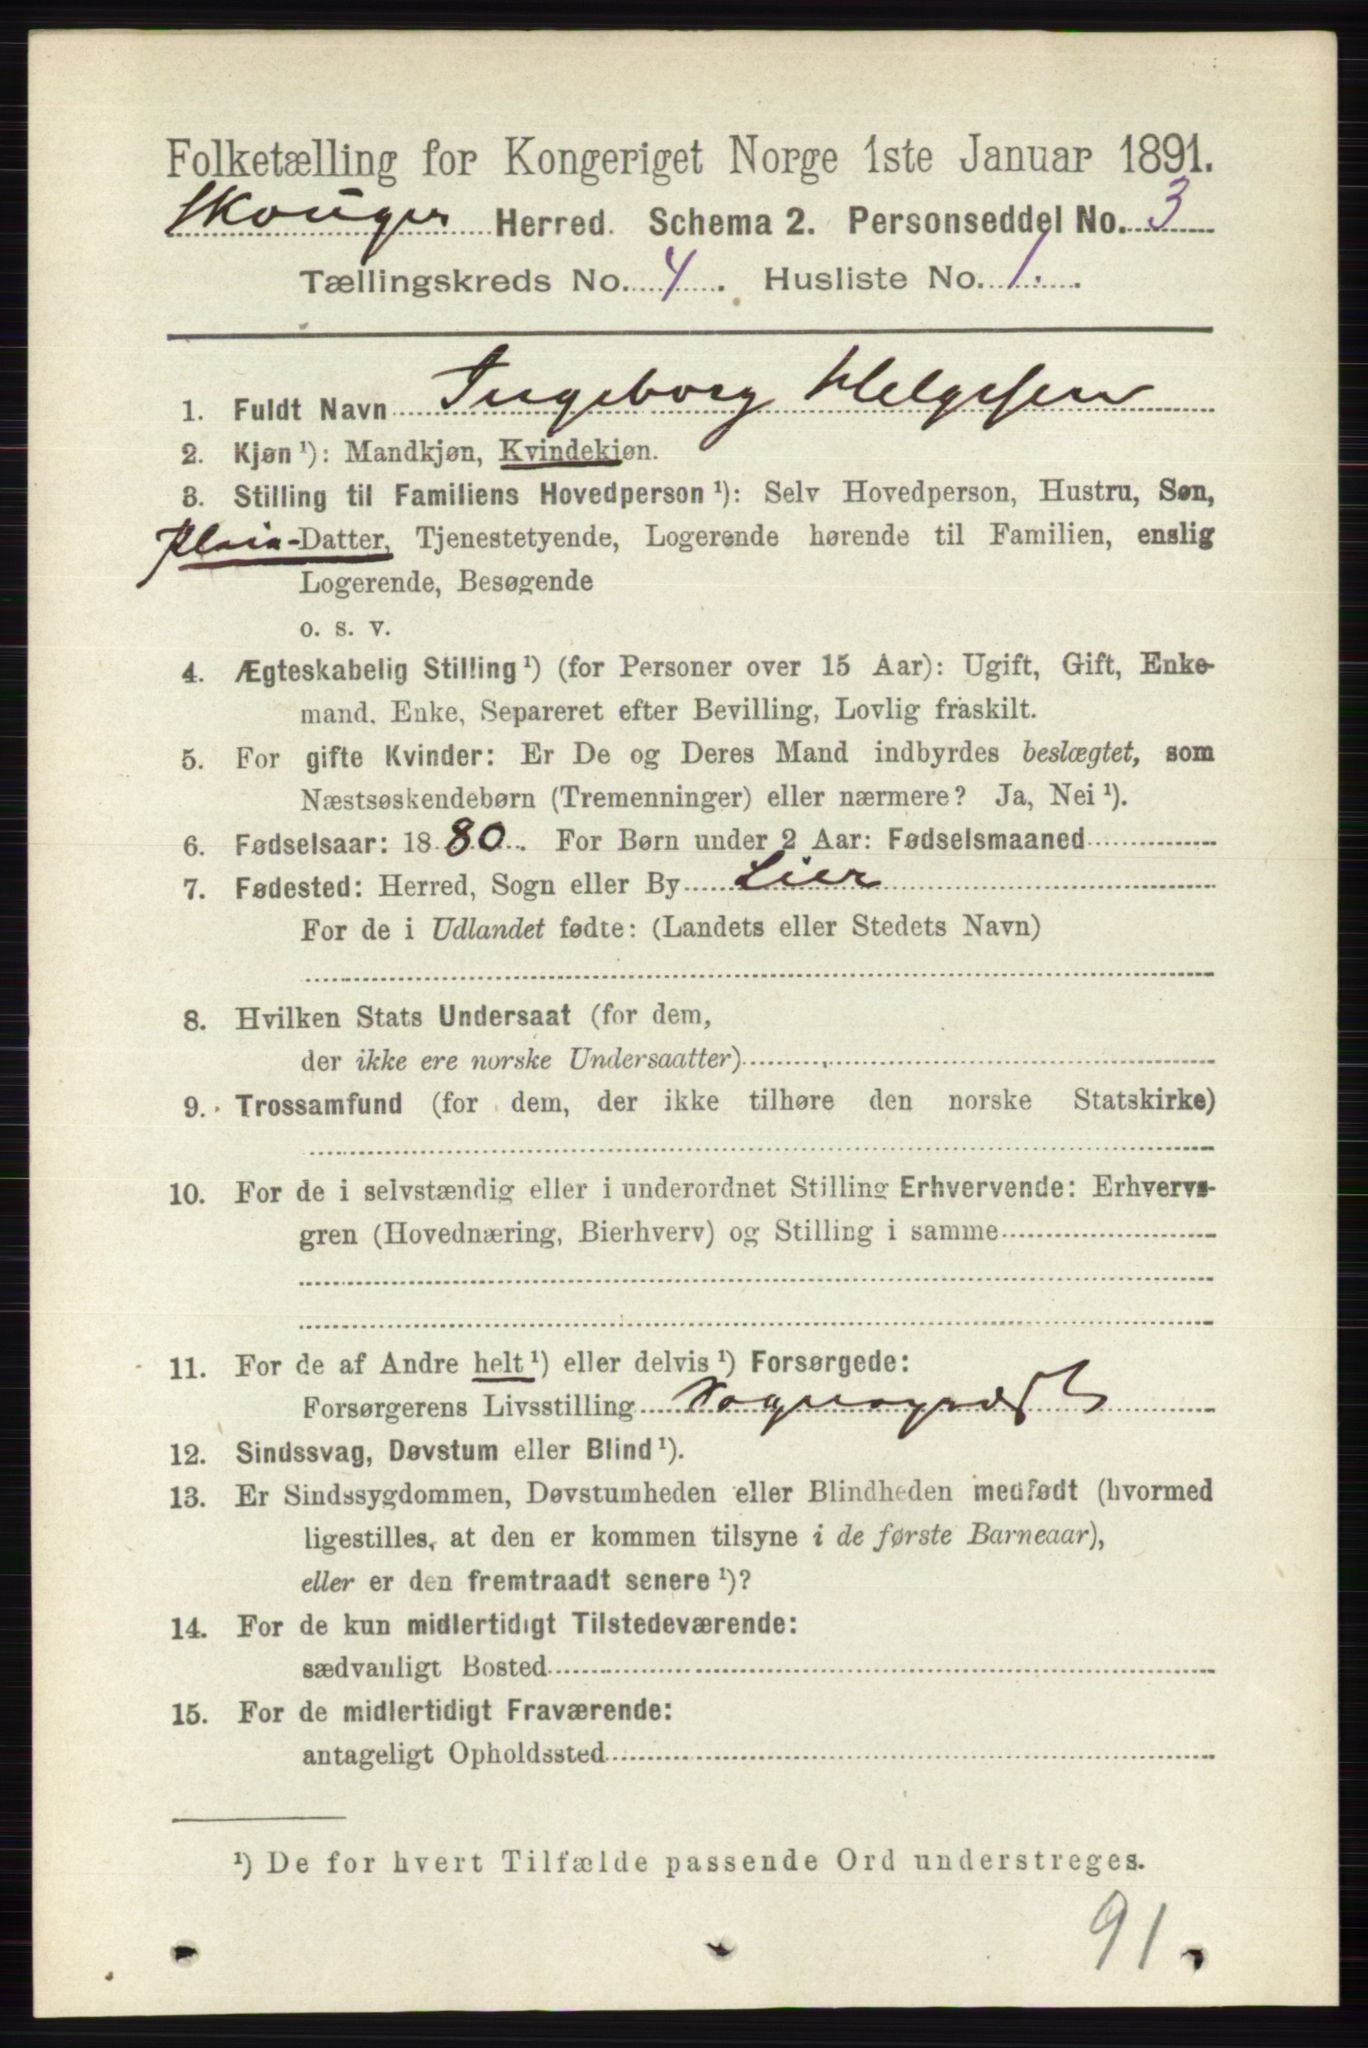 Folketælling for Kongeriget Norge 1ste Januar 1891.
Skouger Herred. Schema 2. Personseddel No. 3
Tællingskreds No. 4. Husliste No. 1.
1. Fuldt Navn Ingeborg Helgesen
2. Kjøn¹): Mandkjøn, Kvindekjøn.
3. Stilling til Familiens Hovedperson¹): Selv Hovedperson, Hustru, Søn,
Pleie-Datter, Tjenestetyende, Logerende hørende til Familien, enslig
Logerende, Besøgende
o. s. v.
4. Ægteskabelig Stilling¹) (for Personer over 15 Aar): Ugift, Gift, Enke-
mand, Enke, Separeret efter Bevilling, Lovlig fraskilt.
5. For gifte Kvinder: Er De og Deres Mand indbyrdes beslægtet, som
Næstsøskendebørn (Tremenninger) eller nærmere? Ja, Nei¹).
6. Fødselsaar: 1880. For Børn under 2 Aar: Fødselsmaaned
7. Fødested: Herred, Sogn eller By Lier
For de i Udlandet fødte: (Landets eller Stedets Navn)
8. Hvilken Stats Undersaat (for dem,
der ikke ere norske Undersaatter)
9. Trossamfund (for dem, der ikke tilhøre den norske Statskirke)
10. For de i selvstændig eller i underordnet Stilling Erhvervende: Erhvervs-
gren (Hovednæring, Bierhverv) og Stilling i samme
11. For de af Andre helt¹) eller delvis¹) Forsørgede:
Forsørgerens Livsstilling Sogneprest
12. Sindssvag, Døvstum eller Blind¹).
13. Er Sindssygdommen, Døvstumheden eller Blindheden medfødt (hvormed
ligestilles, at den er kommen tilsyne i de første Barneaar),
eller er den fremtraadt senere¹)?
14. For de kun midlertidigt Tilstedeværende:
sædvanligt Bosted
15. For de midlertidigt Fraværende:
antageligt Opholdssted
¹) De for hvert Tilfælde passende Ord understreges.
91.